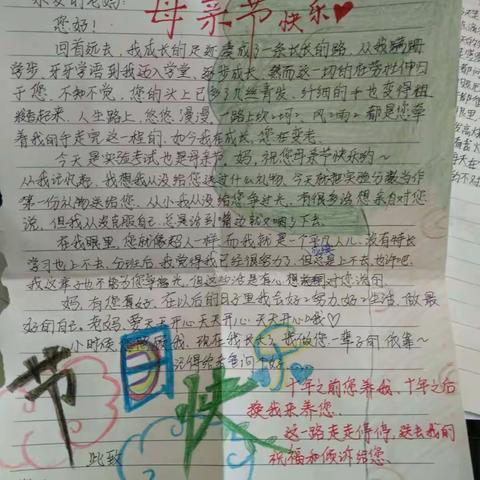 亲爱的老妈:
母亲节快乐
您好!
回首远去,我成长的足迹变成了一条长长的路,从我蹒跚
学步,牙牙学语到我迈入学堂,逐步成长,然而这一切的
于您,不知不觉,您的头上已多了几丝青发,纤细的手也变得粗
糙起来,人生路上,悠悠漫漫,一路上坎坎坷坷,风风雨雨都是您牵
着我的手走完这一程的,如今我在成长,您在变老
今天是实验考试也是母亲节,妈,祝您母亲节快乐的~
从我记事起,我想我从没给您送过什么礼物,今天就把实验分数当作
第一份礼物送给您,从小我从没给您争过光,有很多话想亲自对您
说,但我从没克服自己,总是话到嘴边就又咽了下去
在我眼里,您就像超人一样,而我就是一个平凡人儿,没有特长
学习也上不去,分班后,我觉得我已经很努力了,但还是上不去,也许吧
我这辈子也不能为您争光,但这些话是有心想对您说的
妈,有您真好,在以后的日子里我会好好努力,好好生活,做最
好的自己,老妈,要天天开心天天开心天天开心哦
小时候,您我,现在我长大了,我做您一辈子的依靠~
节日快乐
十年之前您养我,十年之后
换我来养您.
这一路走走停停,送去我的
祝福和倾诉给您
此致